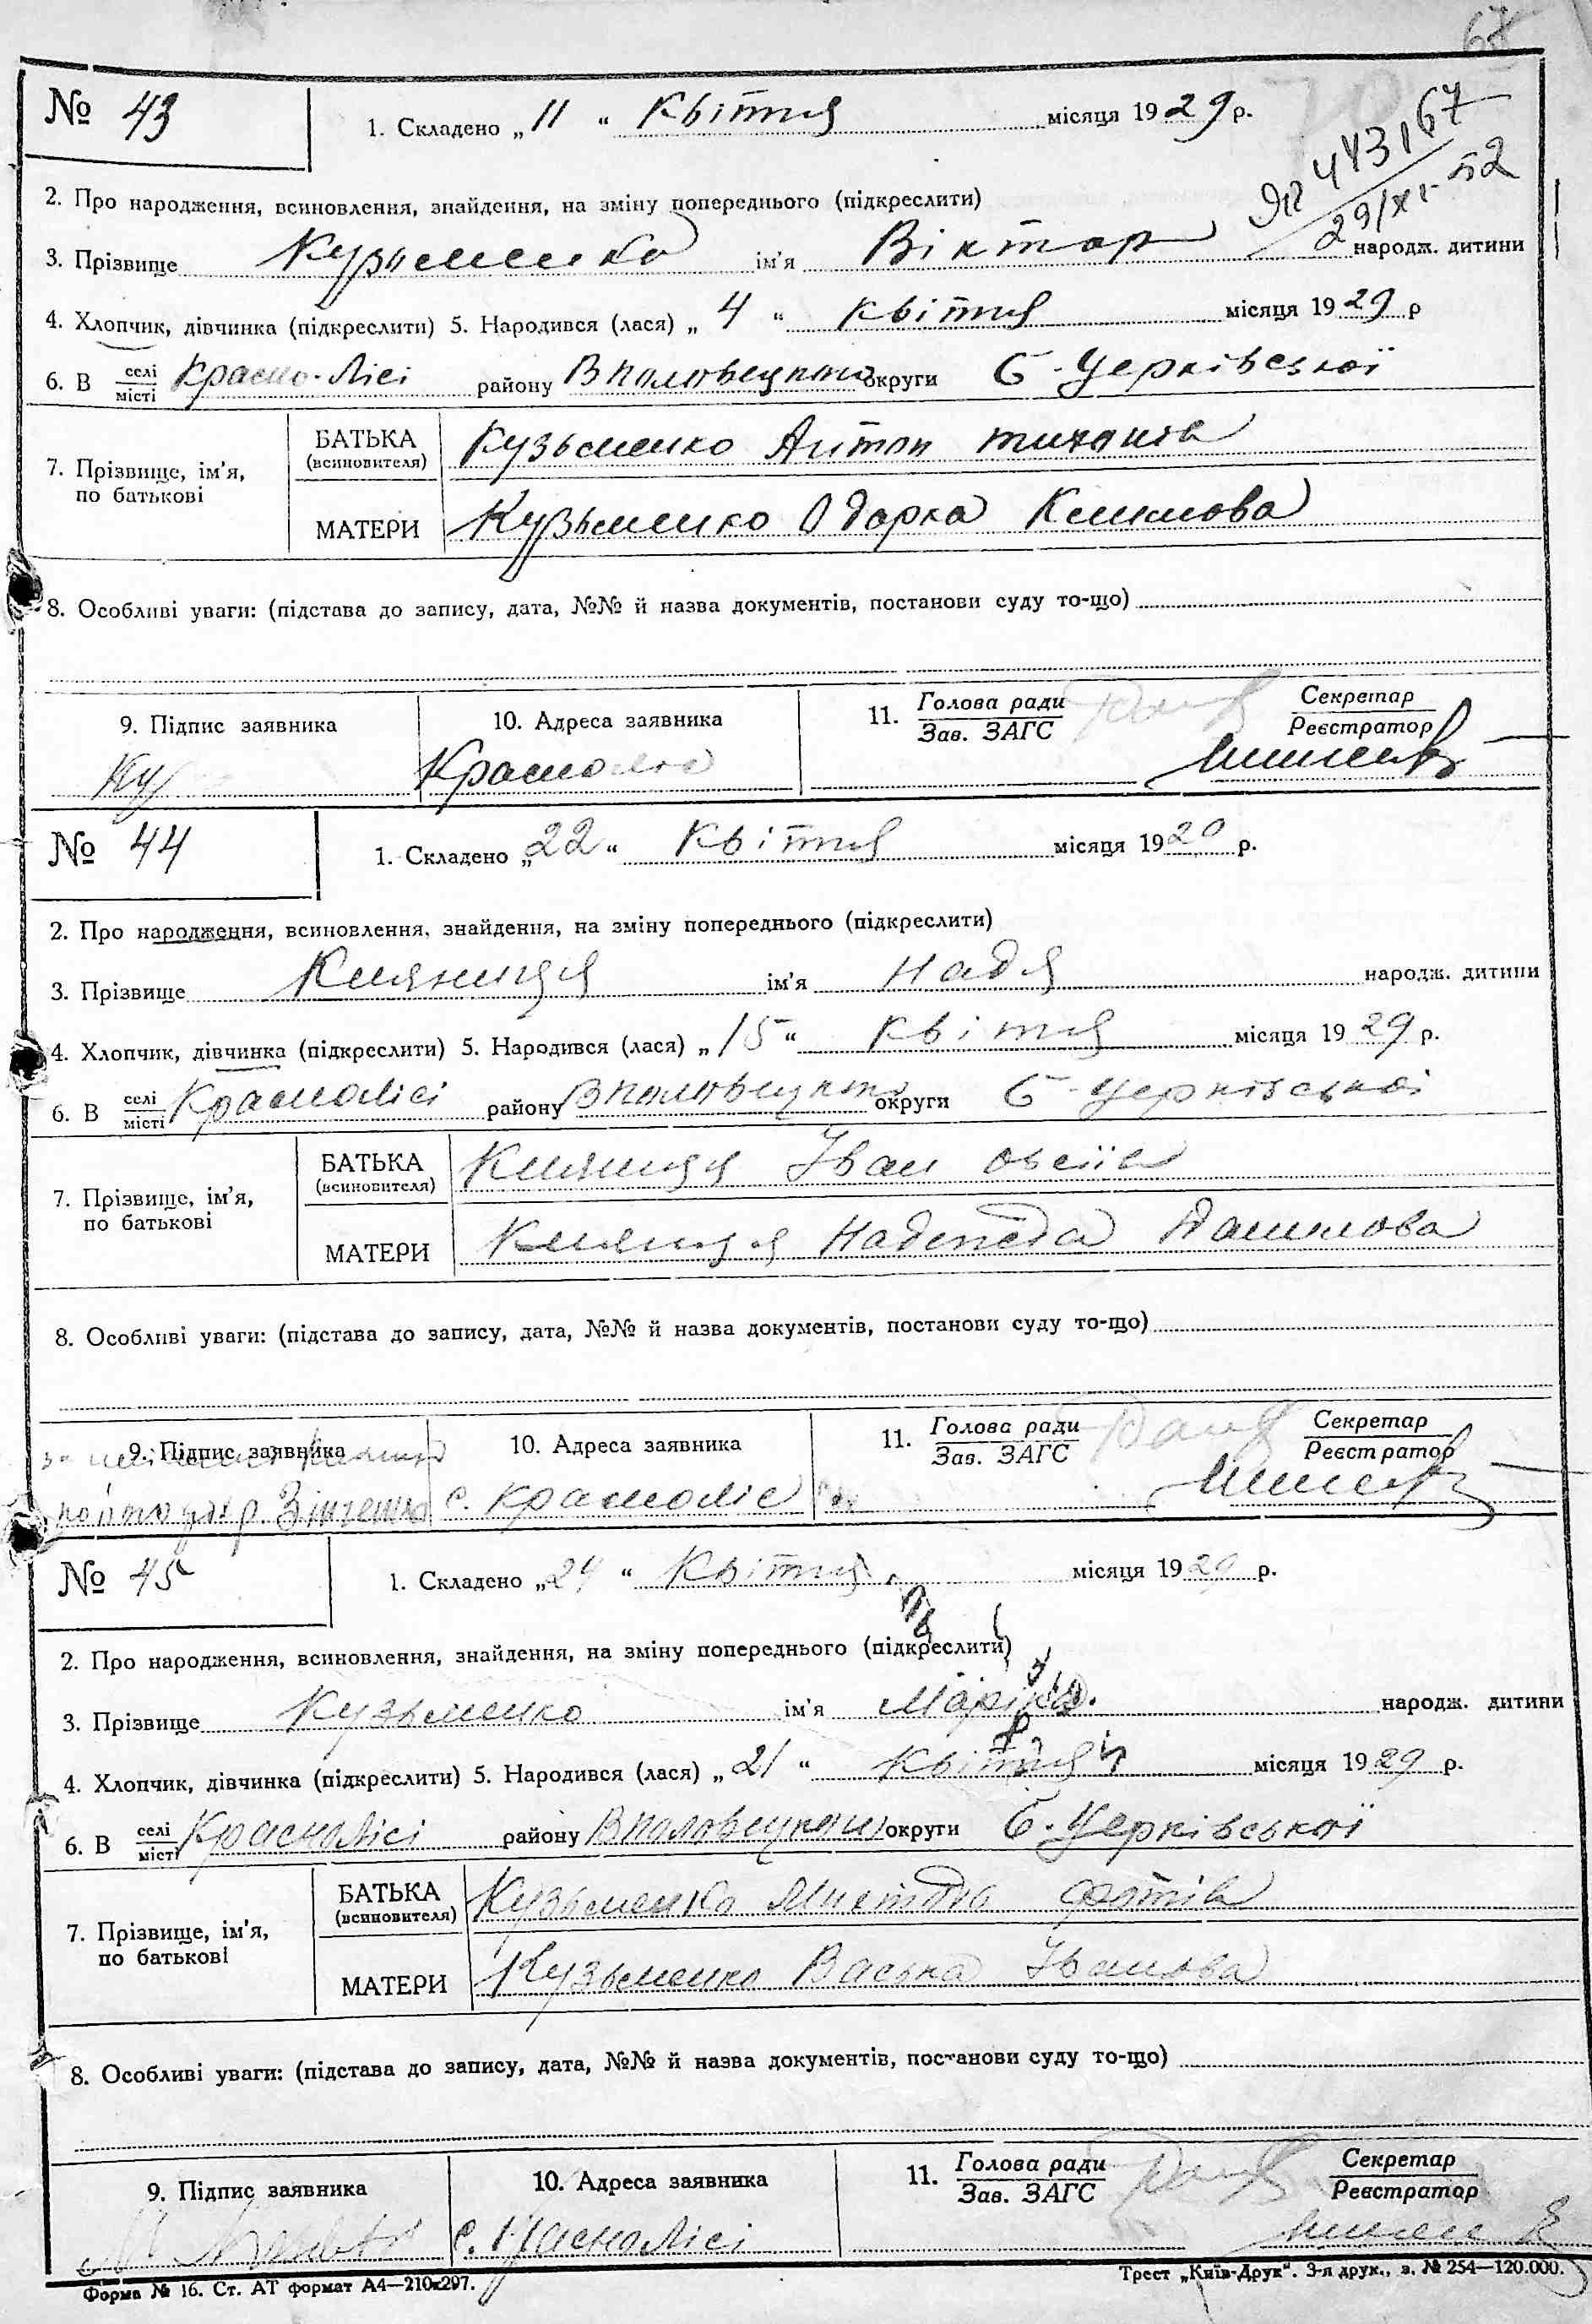 68
№ 43
1. Складено „ 11 “ Квітня місяця 1929 р.
ЯП 443167
29/XI-52
2. Про народження, всиновлення, знайдення, на зміну попереднього (підкреслити)
3. Прізвище Кузьменко ім'я Віктор народж. дитини
4. Хлопчик, дівчинка (підкреслити) 5. Народився (лася) „ 4 “ квітня місяця 1929 р
6. В селі/місті Красно-Лісі району Вполовецького округи Б-Церківської
7. Прізвище, ім'я, по батькові
БАТЬКА (всиновителя) Кузьменко Антон Тихонів
МАТЕРИ Кузьменко Одарка Климова
8. Особливі уваги: (підстава до запису, дата, №№ й назва документів, постанови суду то-що)
9. Підпис заявника 10. Адреса заявника 11. Голова ради/Зав. ЗАГС Секретар/Реєстратор
Ку Краснолісі
№ 44
1. Складено „22“ Квітня місяця 1929 р.
2. Про народження, всиновлення, знайдення, на зміну попереднього (підкреслити)
3. Прізвище Княниця ім'я Надя народж. дитини
4. Хлопчик, дівчинка (підкреслити) 5. Народився (лася) „ 15 “ Квітня місяця 1929 р.
6. В селі/місті Краснолісі району Вполовецького округи Б-Церківської
7. Прізвище, ім'я, по батькові
БАТЬКА (всиновителя) Княниця Іван Овсіїв
МАТЕРИ Княниця Надежда Данилова
8. Особливі уваги: (підстава до запису, дата, №№ й назва документів, постанови суду то-що)
9. Підпис заявника 10. Адреса заявника 11. Голова ради/Зав. ЗАГС Секретар/Реєстратор
р. Зінченко с. Красноліс
№ 45
1. Складено „24 “ Квітня місяця 1929 р.
2. Про народження, всиновлення, знайдення, на зміну попереднього (підкреслити)
3. Прізвище Кузьменко ім'я народж. дитини
4. Хлопчик, дівчинка (підкреслити) 5. Народився (лася) „ 21 “ Квітня місяця 1929 р.
6. В селі/місті Краснолісі району Вполовецького округи Б.Церківської
7. Прізвище, ім'я, по батькові
БАТЬКА (всиновителя) Кузьменко Фотів
МАТЕРИ Кузьменко Васька Іванова
8. Особливі уваги: (підстава до запису, дата, №№ й назва документів, постанови суду то-що)
9. Підпис заявника 10. Адреса заявника 11. Голова ради/Зав. ЗАГС Секретар/Реєстратор
с. Краснолісі
Форма № 16. Ст. АТ формат А4—210х297.
Трест „Київ-Друк“. 3-я друк., з. № 254—120.000.